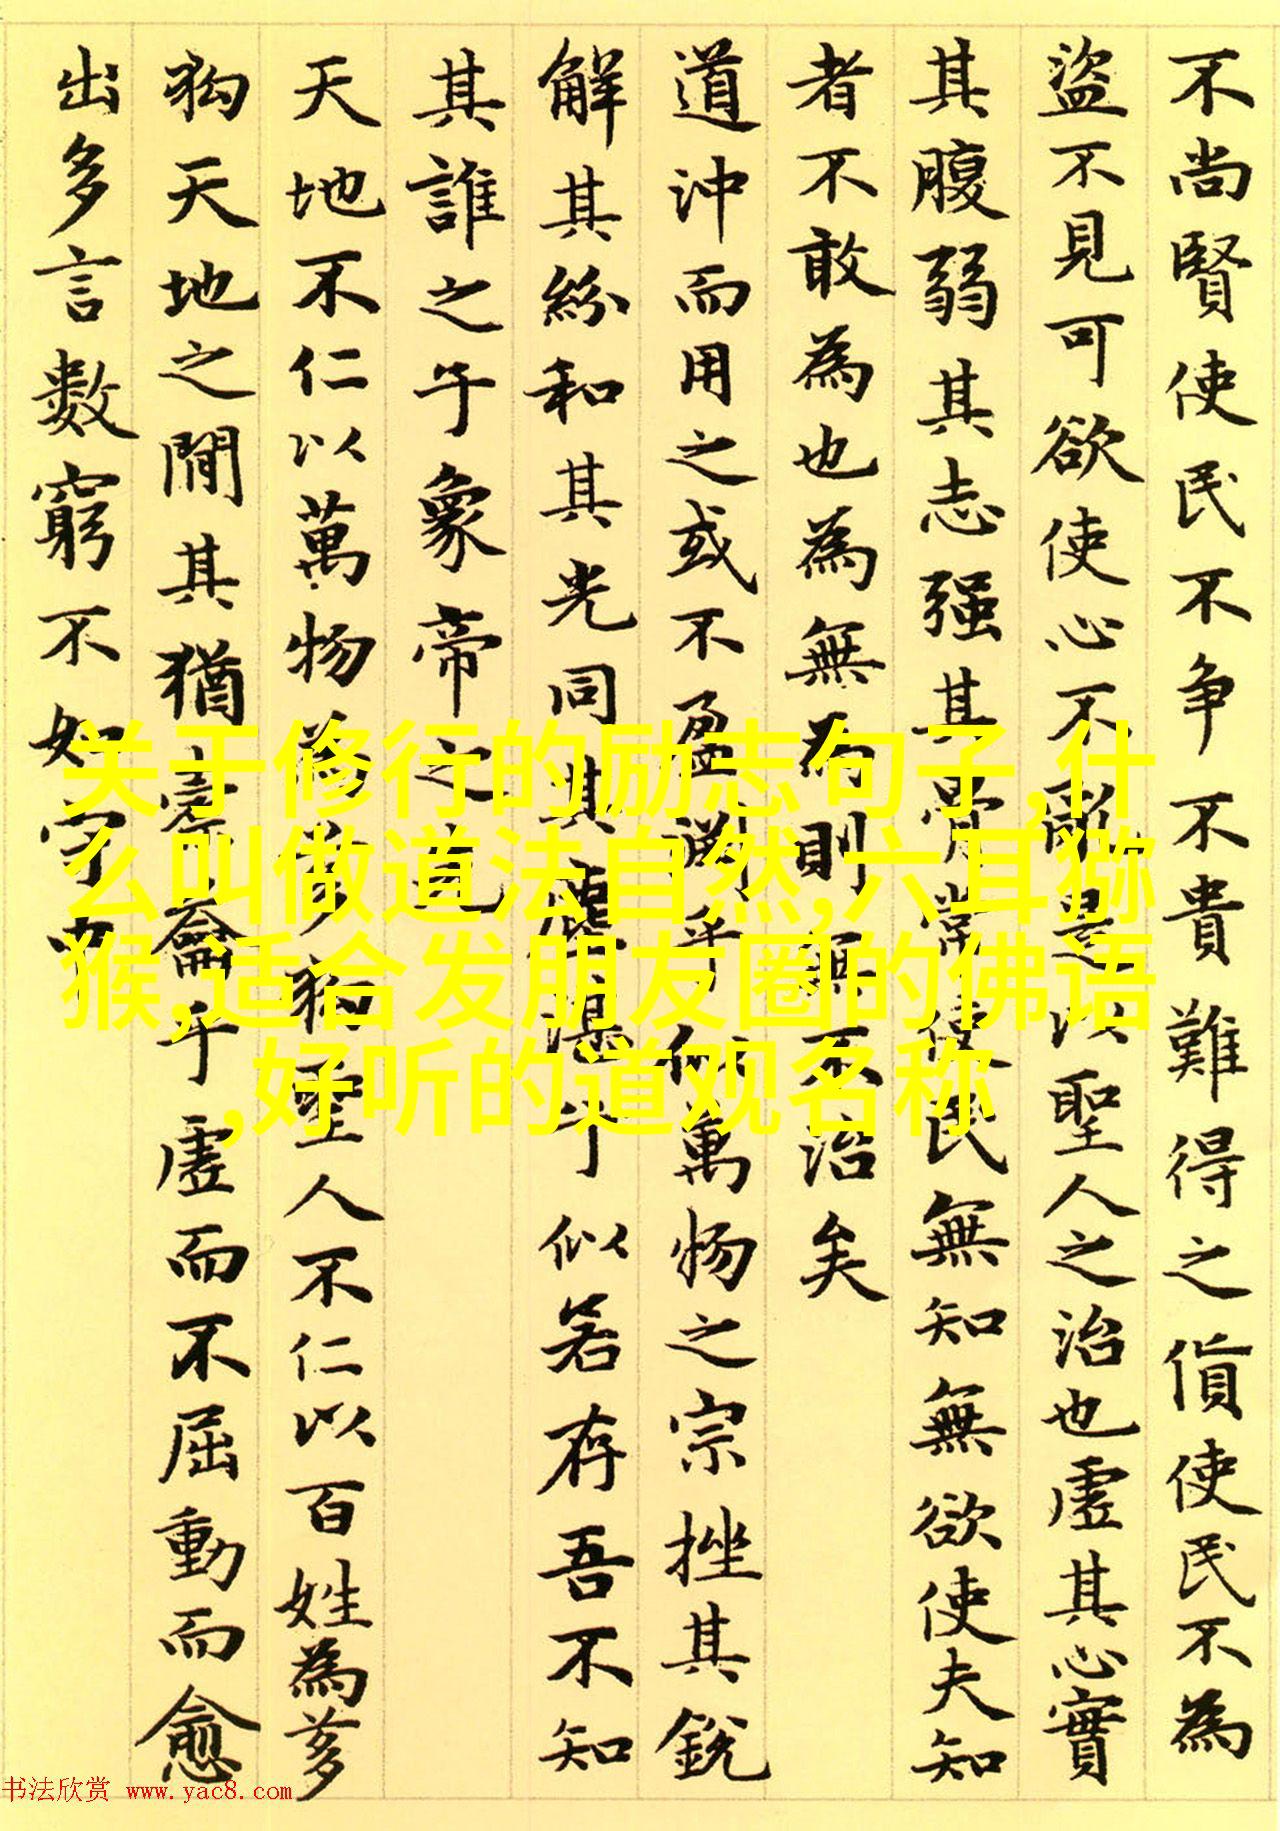 不尚賢使民不争不貴難得之貨使民不為
盜不見可欲使心不亂是以聖人之治也虛其心實
其腹弱其志强其骨常使民無知無欲使夫知
者不敢為也為無為則無不治矣
道沖而用之或不盈淵乎似萬物之宗挫其銳
解其紛和其光同其塵湛乎似若存吾不知
其誰之子象帝之先
天地不仁以萬物為芻狗聖人不仁以百姓為芻
狗天地之間其猶橐籥乎虛而不屈動而愈
出多言數窮不如守中
关于修行的励志句子,什
么叫做道法自然,六耳猕
猴,适合发朋友圈的佛语
,好听的道观名称
书法欣赏 www.yac8.com